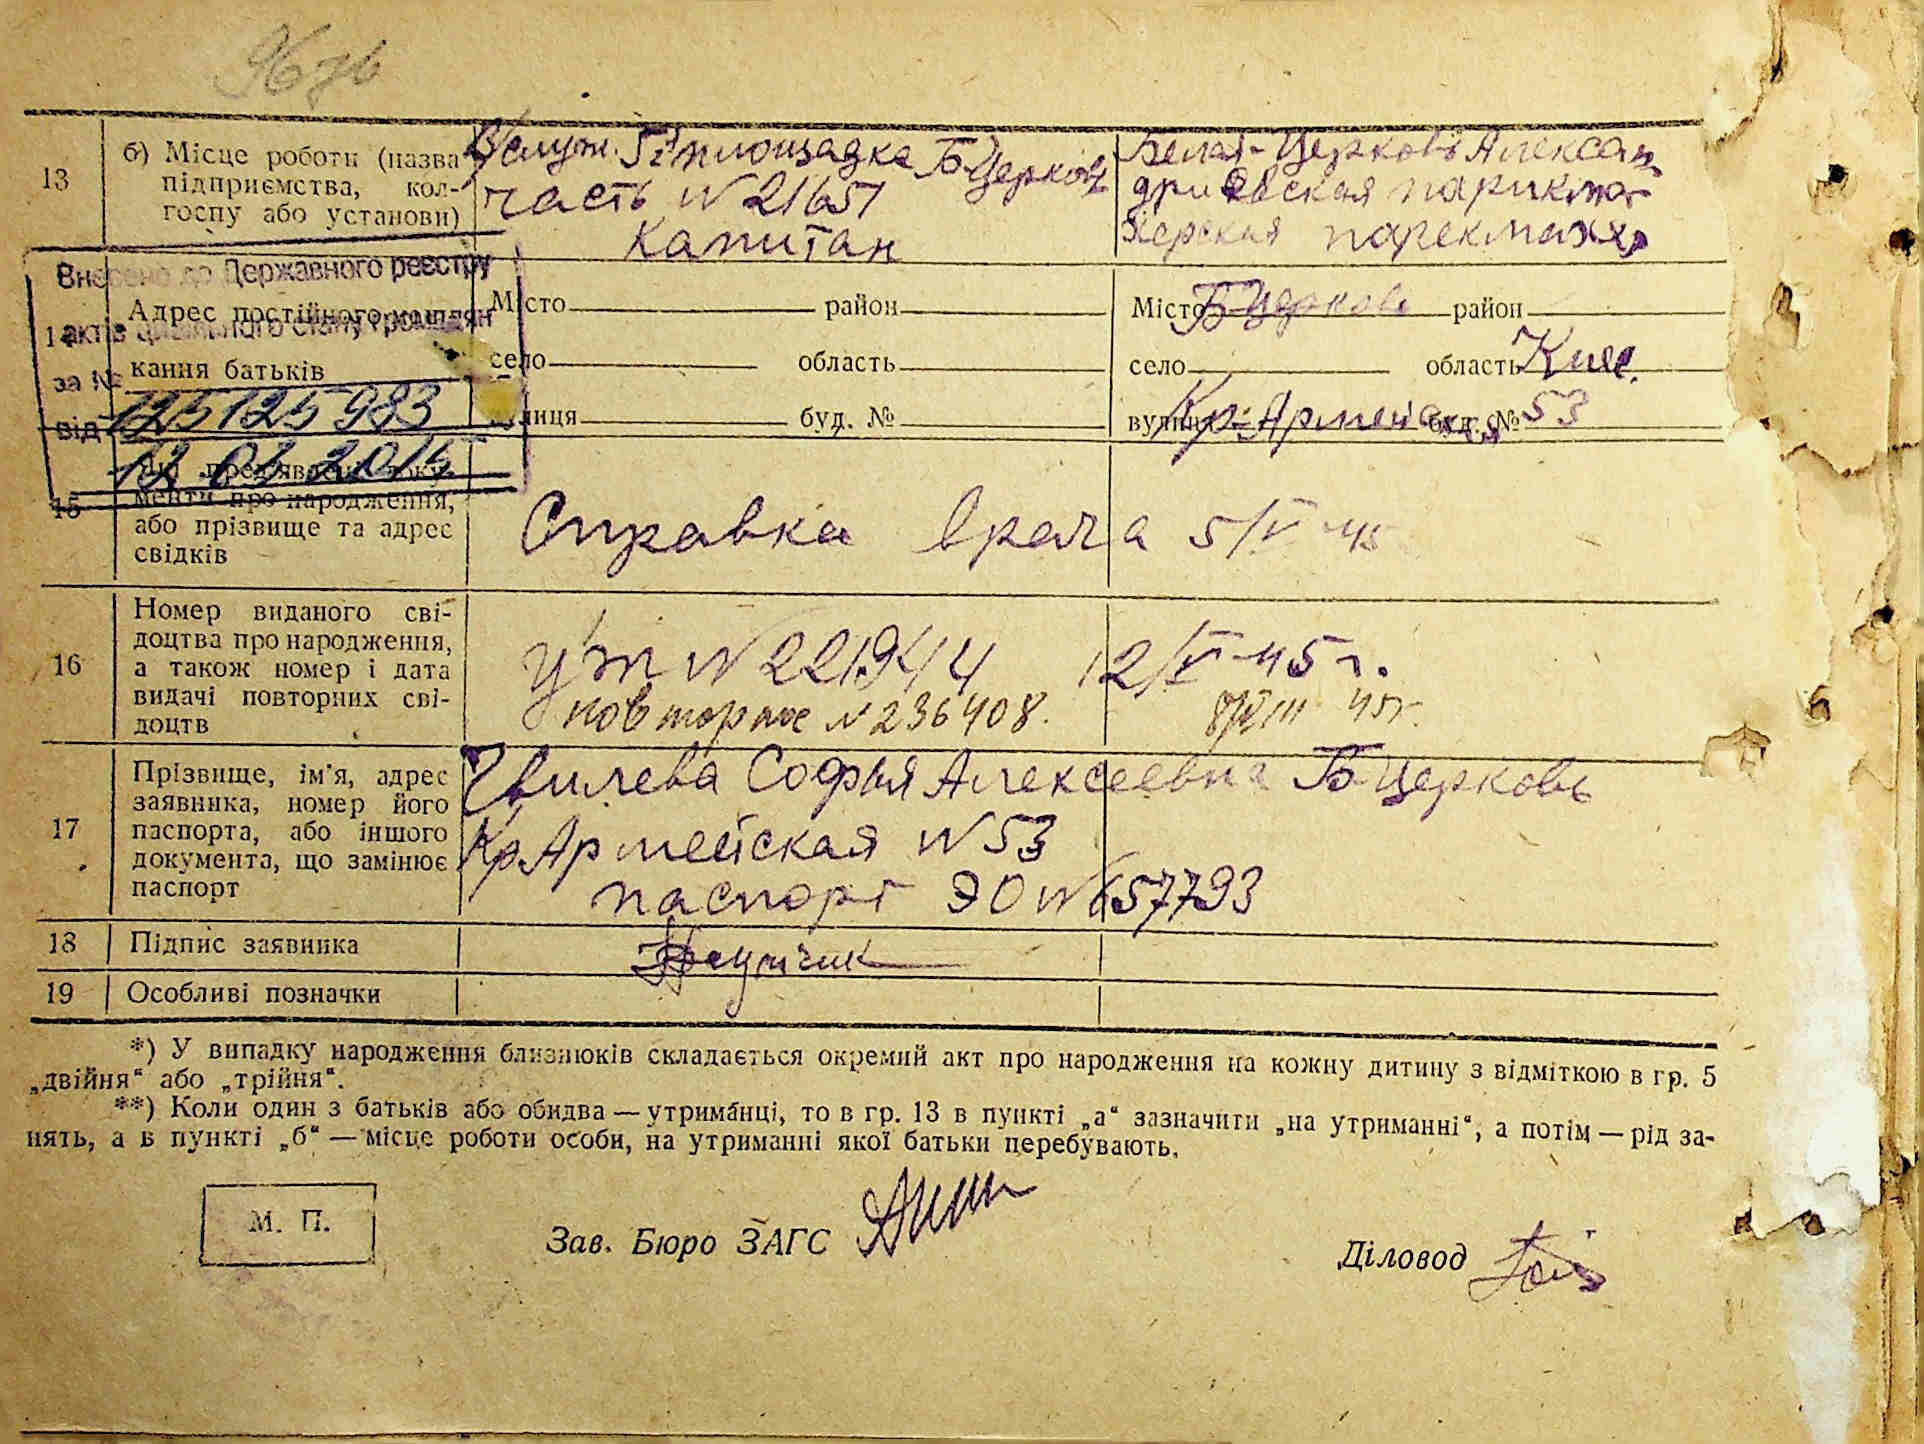 13
б) Місце роботи (назва підприємства, кол-
госпу або установи)
площадка Б Церковь
часть № 21651
капитан
Белая-Церковь Алексан
дриевская парикма
херская
Внесено до Державного реєстру
актів цивільного стану громадян
за №
125125983
від
Адрес постійного мешкання батьків
Місто район
село область
вулиця буд. №
Місто Б Церковь район
село область Киев.
вулиця Кр-Армейская буд. № 53
15
Які пред'явлені документи про народження,
або прізвище та адрес
свідків
Справка врача 5/V-45
16
Номер виданого сві-
доцтва про народження,
а також номер і дата
видачі повторних сві-
доцтв
УЖ № 221944 12/V-45 г.
повторное № 236408. 8/VIII 45г.
17
Прізвище, ім'я, адрес
заявника, номер його
паспорта, або іншого
документа, що замінює
паспорт
Софья Алексеевна Б-Церковь
Кр Армейская № 53
паспорт ЭО № 657793
18
Підпис заявника
19
Особливі позначки
*) У випадку народження близнюків складається окремий акт про народження на кожну дитину з відміткою в гр. 5
„двійня“ або „трійня“.
**) Коли один з батьків або обидва — утриманці, то в гр. 13 в пункті „а“ зазначити „на утриманні“, а потім — рід за-
нять, а в пункті „б“ — місце роботи особи, на утриманні якої батьки перебувають.
М. П.
Зав. Бюро ЗАГС
Діловод